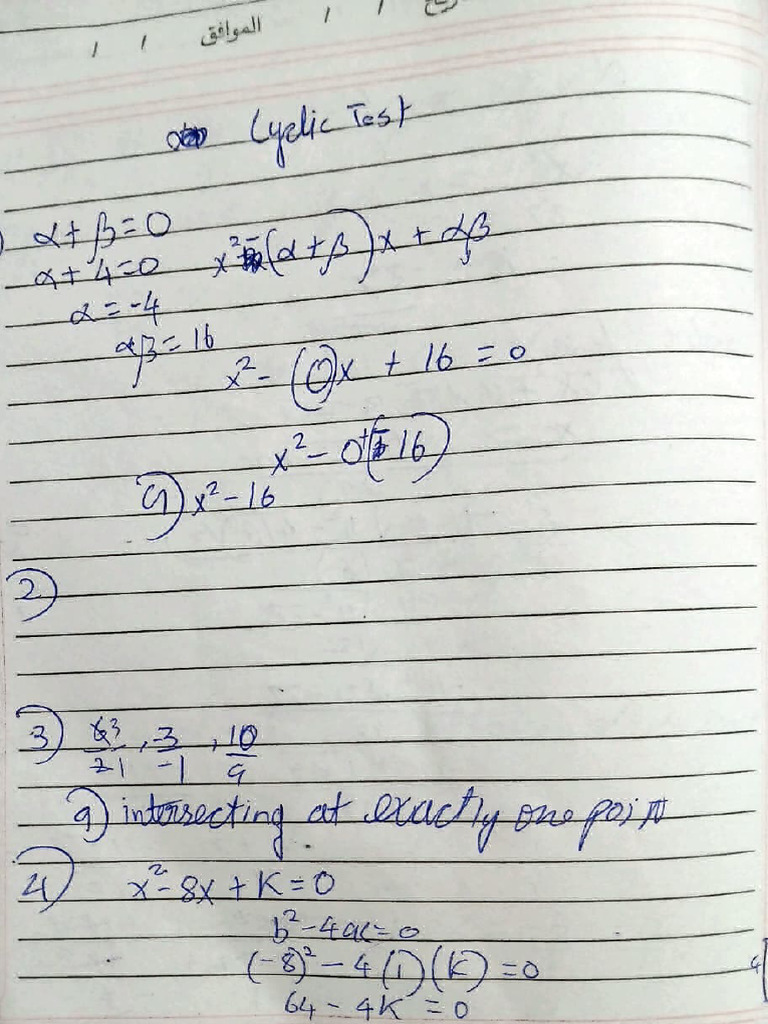 / / الموافق / /
Cyclic Test
α + β = 0
x² - (α + β)x + αβ
α + 4 = 0
α = -4
αβ = 16
x² - (0)x + 16 = 0
x² - 0 + (-16)
a) x² - 16
2)
3) 63/21 , 3/-1 , 10/9
a) intersecting at exactly one point
4) x² - 8x + K = 0
b² - 4ac = 0
(-8)² - 4(1)(K) = 0
64 - 4K = 0